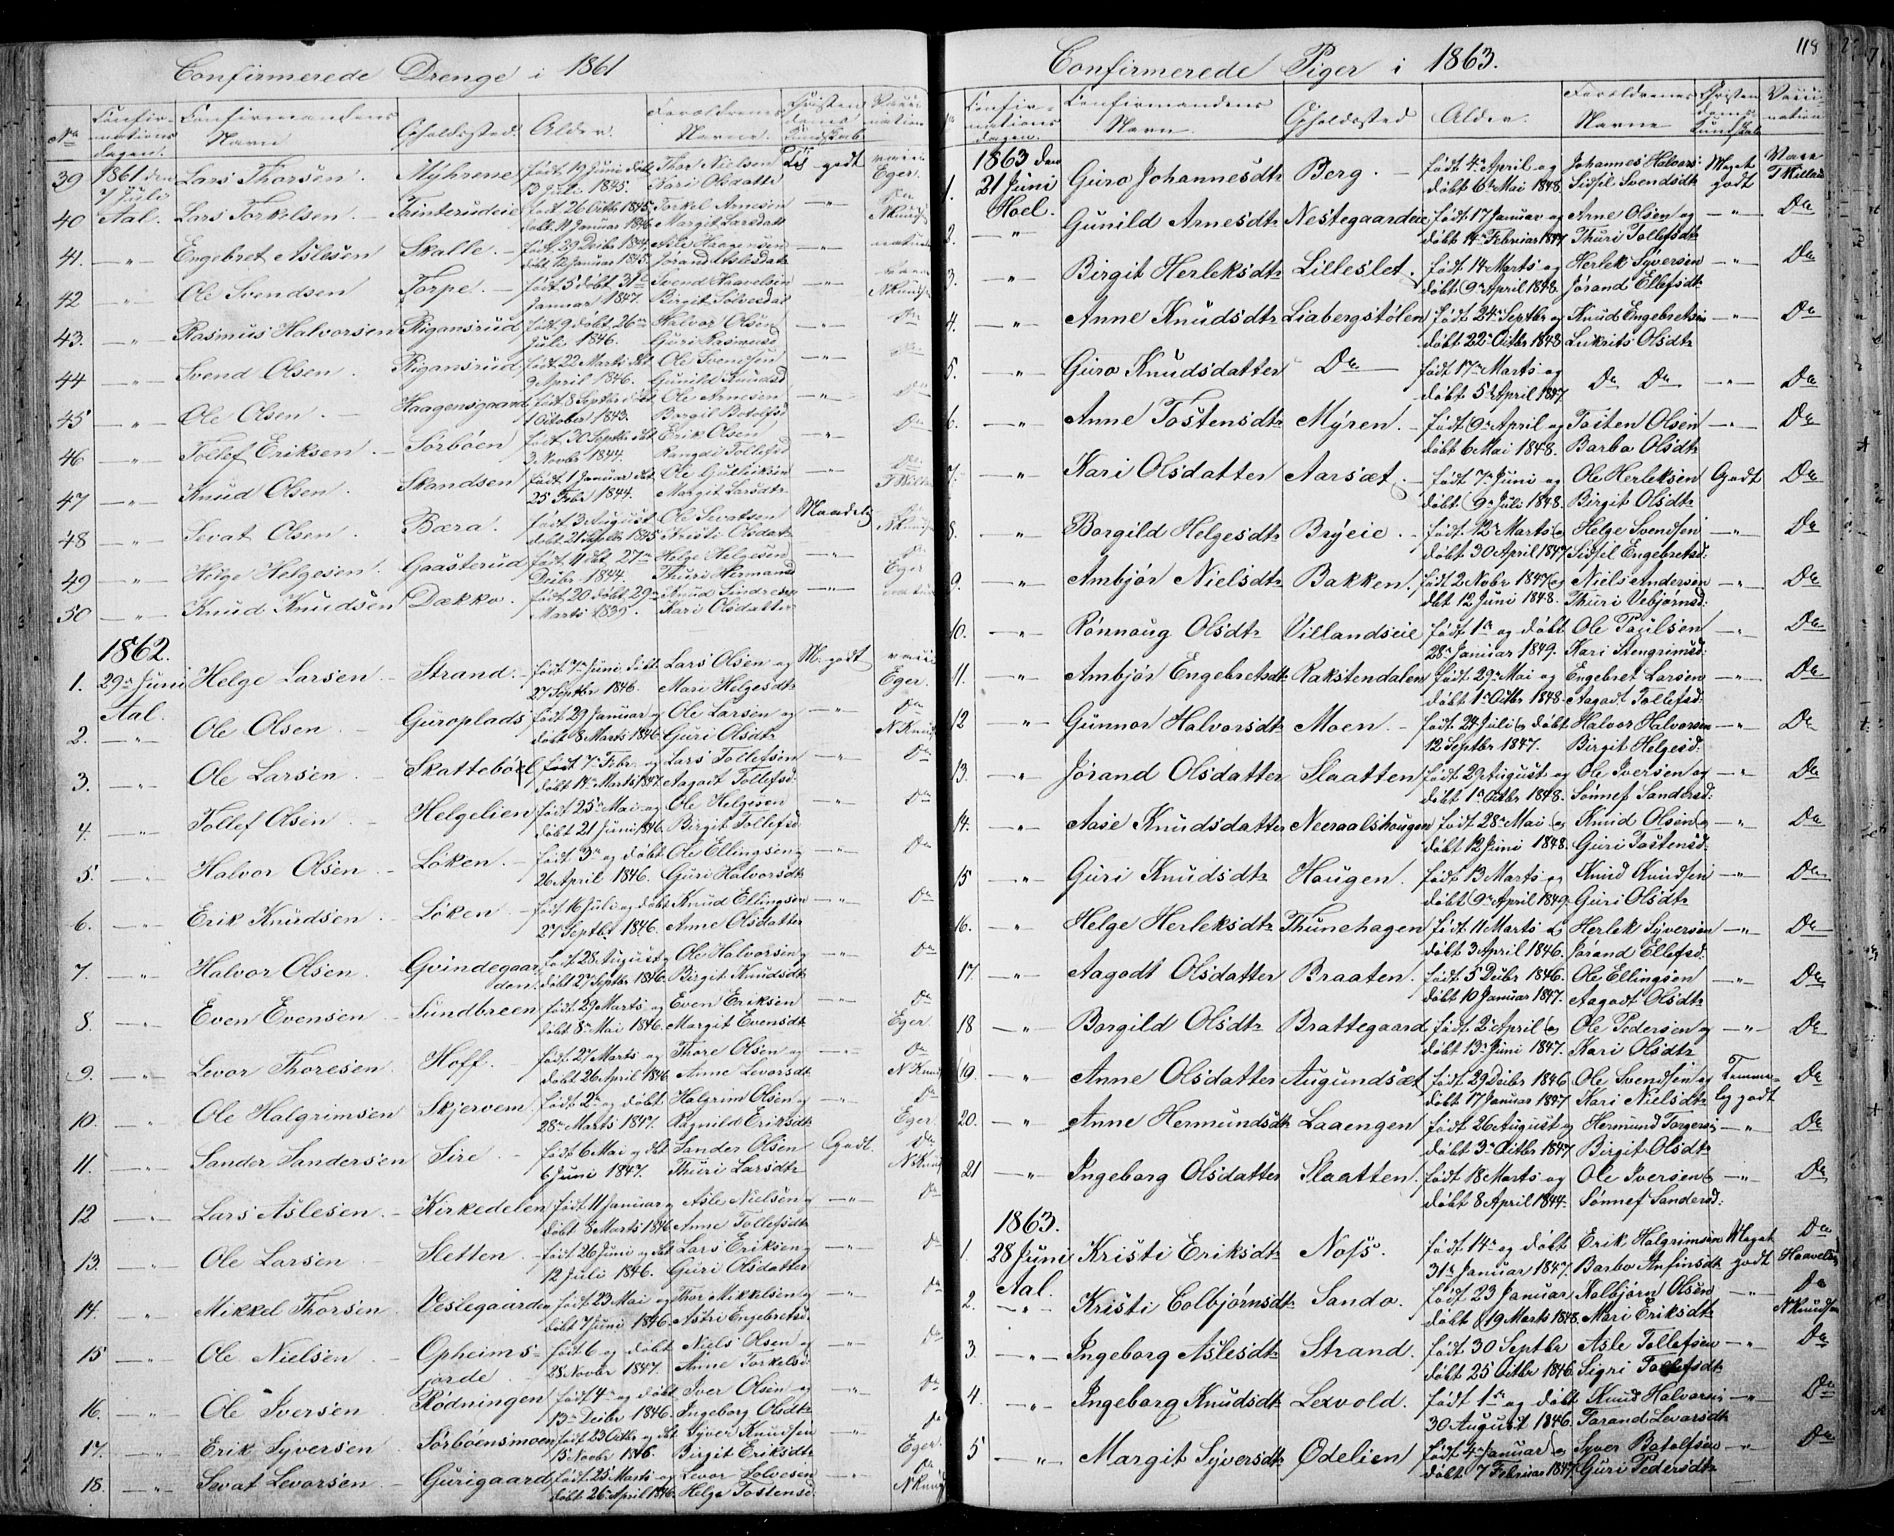 Confirmerede Drenge i 1861
No Confirmations dagen. Confirmandens Navn Opholdssted. Alder. Forældrenes Navne.
39 1861 den 7 Juli Lars Thorsen. Myhrene Thor Nielsen Kari Olsdattr godt Eger.
40 Aal. Lars Torkelsen. Trinterudeie født 26 Octbr 1845 døbt 11 Januar 1846 Torkel Arnesen Margit Larsdatr
41. " Engebret Aslesen Skalle. født 29 Decbr 1844, døbt 12 Januar 1845. Asle Haagensen Jørand Aslesdatr
42 " Ole Svendsen Torpe. født 5 døbt 31te Januar 1847. Svend Haavelsen Birgit Solvesdat
43. " Rasmus Halvorsen Rigansrud født 9 døbt 26de Juli 1846. Halvor Olsen Guri Rasmusd
44 " Svend Olsen. Rigansrud født 22 Marts dbt 9 April 1846. Ole Svendsen Gunild Knudsd
45 " Ole Olsen. Haagensgaard født 8 Septbr dbt 1 October 1843. Ole Arnesen Borgil Botolfsd
46 " Tollef Eriksen Sørbøen født 30 Septbr dbt 3 Novbr 1844. Erik Olsen Rangdi Tollefsd
47 " Knud Olsen. Skandsen født 1 Januar dbt 25 Febr 1844. Ole Gulliksen Margit Larsdtr
48 " Sevat Olsen. Bæra. født 3 August Ole Sevatsen Kristi Olsdatr Maadelig
49 " Helge Helgesen. Gaasterud født 4 dbt 27de Decbr 1844. Helge Helgesen Thuri Hermunds Eger
50 " Knud Knudsen Dækko. født 20 døbt 29de Marts 1839. Knud Sindresen Kari Olsdatter
1862.
1. 29de Juni Aal. Helge Larsen Strand. født 7de Juni døbt 27 Septbr 1846. Lars Olsen og Mari Helgesdtr M. godt Eger.
2. " Ole Olsen Guroplads født 29 Januar og døbt 8 Marts 1846 Ole Larsen og Guri Olsdtr
3. " Ole Larsen Skattebøl født 7de Febr. og døbt 14de Marts 1847. Lars Tollefsen Aagodt Tollefsd. " Do
4. " Tollef Olsen Helgelien født 25de Mai og døbt 21 Juni 1846. Ole Helgesen Birgit Tollefsd " Do
5. " Halvor Olsen Løken. født 3de og døbt 26 April 1846. Ole Ellingsen og Guri Halvorsdtr " Do
6. " Erik Knudsen Løken. født 16 Juli og døbt 27 Septbr 1846. Knud Ellingsen Anne Olsdatter " Do
7. " Halvor Olsen. Gvindegaarden. født 28 August og døbt 27 Septbr 1846 Ole Halvorsen og Birgit Knudsdtr " Do
8. " Even Evensen Sundbreen født 29 Marts og døbt 8de Mai 1846. Even Eriksen Margit Evensdtr " Do Eger.
9. " Levor Thoresen Hoff. født 27 Marts og døbt 26 April 1846 Thore Olsen og Anne Levorsdtr " Do N Knud
10. " Ole Halgrimsen Skjervem født 2de og døbt 28de Marts 1847. Halgrim Olsen og Ragnild Eriksdtr " Do Eger.
11. " Sander Sandersen Sire. født 6 Mai og dbt 6 Juni 1847. Sander Olsen Thuri Larsdtr Godt. Do N Knud
12 " Lars Aslesen. Kirkedelen født 11 Januar og døbt 8 Marts 1846. Asle Nielsen og Anne Tollefsdtr " Do
13. " Ole Larsen Sletten. født 26 Juni og dbt 12 Juli 1846. Lars Eriksen og Guri Olsdatter " Do
14. " Mikkel Thorsen. Veslegaarden født 23 Mai og døbt 7 Juni 1846. Thor Mikkelsen og Astri Engebretsd. " Do
15 " Ole Nielsen Opheimsjorde født 6 og døbt 28 Novbr 1847. Niels Olsen og Anne Torkelsd " Do
16. " Ole Iversen Rødningen født 4de og døbt 13de Decbr 1846. Iver Olsen og Ingeborg Olsdtr " Do
17. " Erik Syversen Sørbøensmoen født 23 Octbr og dbt 15 Novbr 1846. Syver Knudsen Birgit Eriksdtr " Do Eger.
18. " Sevat Levorsen Gurigaard født 25 Marts og døbt 26de April 1846. Levor Solvesen Helge Tostensd. " Do N Knud
Confirmerede Piger i 1863. 118
Confirmations dagen. Confirmandens Navn. Opholdssted Alder. Forældrenes Navne Christendoms Kundskab Vaccination
1. 1863 den 21 Juni Hoel. Guro Johannesdtr Berg. født 4de April og døbt 6te Mai 1848 Johannes Halvors Sidsil Svendsdtr Meget godt Vacc T Willad
2. " Gunild Arnesdtr Nestegaardeie født 17 Januar og døbt 14de Februar 1847 Arne Olsen og Thuri Tollefsdtr " Do
3. " Birgit Herleksdtr Lilleslet. født 14 Marts og døbt 9de April 1848. Herlek Syversen Jørand Ellefsdtr " Do
4. " Anne Knudsdtr Liabergstølen født 24de Septbr og døbt 22de Octbr 1848 Knud Engebretsen Olsdtr " Do
5. " Guro Knudsdatter Do født 17de Marts og døbt 5te April 1847 Do Do " Do
6. " Anne Tostensdtr Myren. født 9de April og døbt 6 Mai 1848. Tosten Olsen Barbo Olsdtr " Do
7. " Kari Olsdatter Aarsæt. født 7de Juni og døbt 9de Juli 1848. Ole Herleksen Birgit Olsdtr Godt Do
8. " Borgild Helgesdtr Bryeie. født 12te Marts og døbt 30 April 1847 Helge Svendsen Sidsel Engebretsd. " Do
9. " Ambjør Nielsdtr Bakken. født 2 Novbr 1847 og dbt 12 Juni 1848. Niels Andersen Thuri Vebjørnsd: " Do
10. " Rønnaug Olsdtr Villandseie født 1te og døbt 28de Januar 1849. Ole Paulsen Kari Stengrimsd: " Do
11. " Ambjør Engebretsdtr Rakstendalen født 29de Mai og døbt 1te Octbr 1848. Engebret Larsen Aagodt Tollefsd: " Do
12 " Gunnor Halvorsdtr Moen. født 24 Juli og døbt 12 Septbr 1847. Halvor Halvorsen Birgit Helgesd: " Do
13. " Jørand Olsdatter Slaatten født 29 August og døbt 1te Octbr 1848. Ole Iversen og Sønnef Sandersd: " Do
14. " Aase Knudsdatter Neeraalshougen født 28de Mai og døbt 12 Juni 1848. Knud Olsen og Guri Tostensd: " Do
15 " Guri Knudsdtr Hougen. født 13 Marts og døbt 9de April 1849. Knud Knudsen Guri Olsdtr " Do
16. " Helge Herleksdtr Thunehagen født 11 Marts og døbt 3 April 1846. Herlek Syversen Jørand Ellefsd. " Do
17. " Aagodt Olsdatter Braaten. født 5 Decbr 1846. døbt 10 Januar 1847. Ole Ellingsen Aagodt Olsdtr " Do
18 " Borgild Olsdtr Brattegaard født 2de April og døbt 13de Juni 1847. Ole Pedersen og Kari Olsdtr " Do
19. " Anne Olsdatter Augundsæt født 29 Decbr 1846 døbt 17 Januar 1847 Ole Svendsen og Kari Nielsdtr Temmelig godt Do
20. " Anne Hermundsdtr Laaengen født 26 August og døbt 3de Octbr 1847 Hermund Torgers Birgit Olsdtr " Do
21 " Ingeborg Olsdatter Slaatten. født 18 Marts og døbt 8 April 1844. Ole Iversen og Sønnef Sandersd: " Do
1863.
1. 28 Juni Aal. Kristi Eriksdtr Noss. født 14de og døbt 31te Januar 1847. Erik Halgrimsen Barbo Anfinsdtr Meget godt Do Haavelsen
2. " Kristi Colbjørnsdtr Sando. født 23 Januar døbt 19 Marts 1848. Kolbjørn Olsen Mari Eriksdtr " Do N Knudsen
3 " Ingeborg Aslesdtr Strand. født 30 Septbr døbt 25 Octbr 1846. Asle Tollefsen Sigri Tollefsdtr " Do
4 " Ingeborg Knudsdtr Lexvold. født 1te og døbt 30 August 1846. Knud Halvors Tarand Levorsdtr " Do
5 " Margit Syversdtr Ødelien født 4de Januar og døbt 7 Februar 1847 Syver Botolfsen Guri Pedersdtr " Do